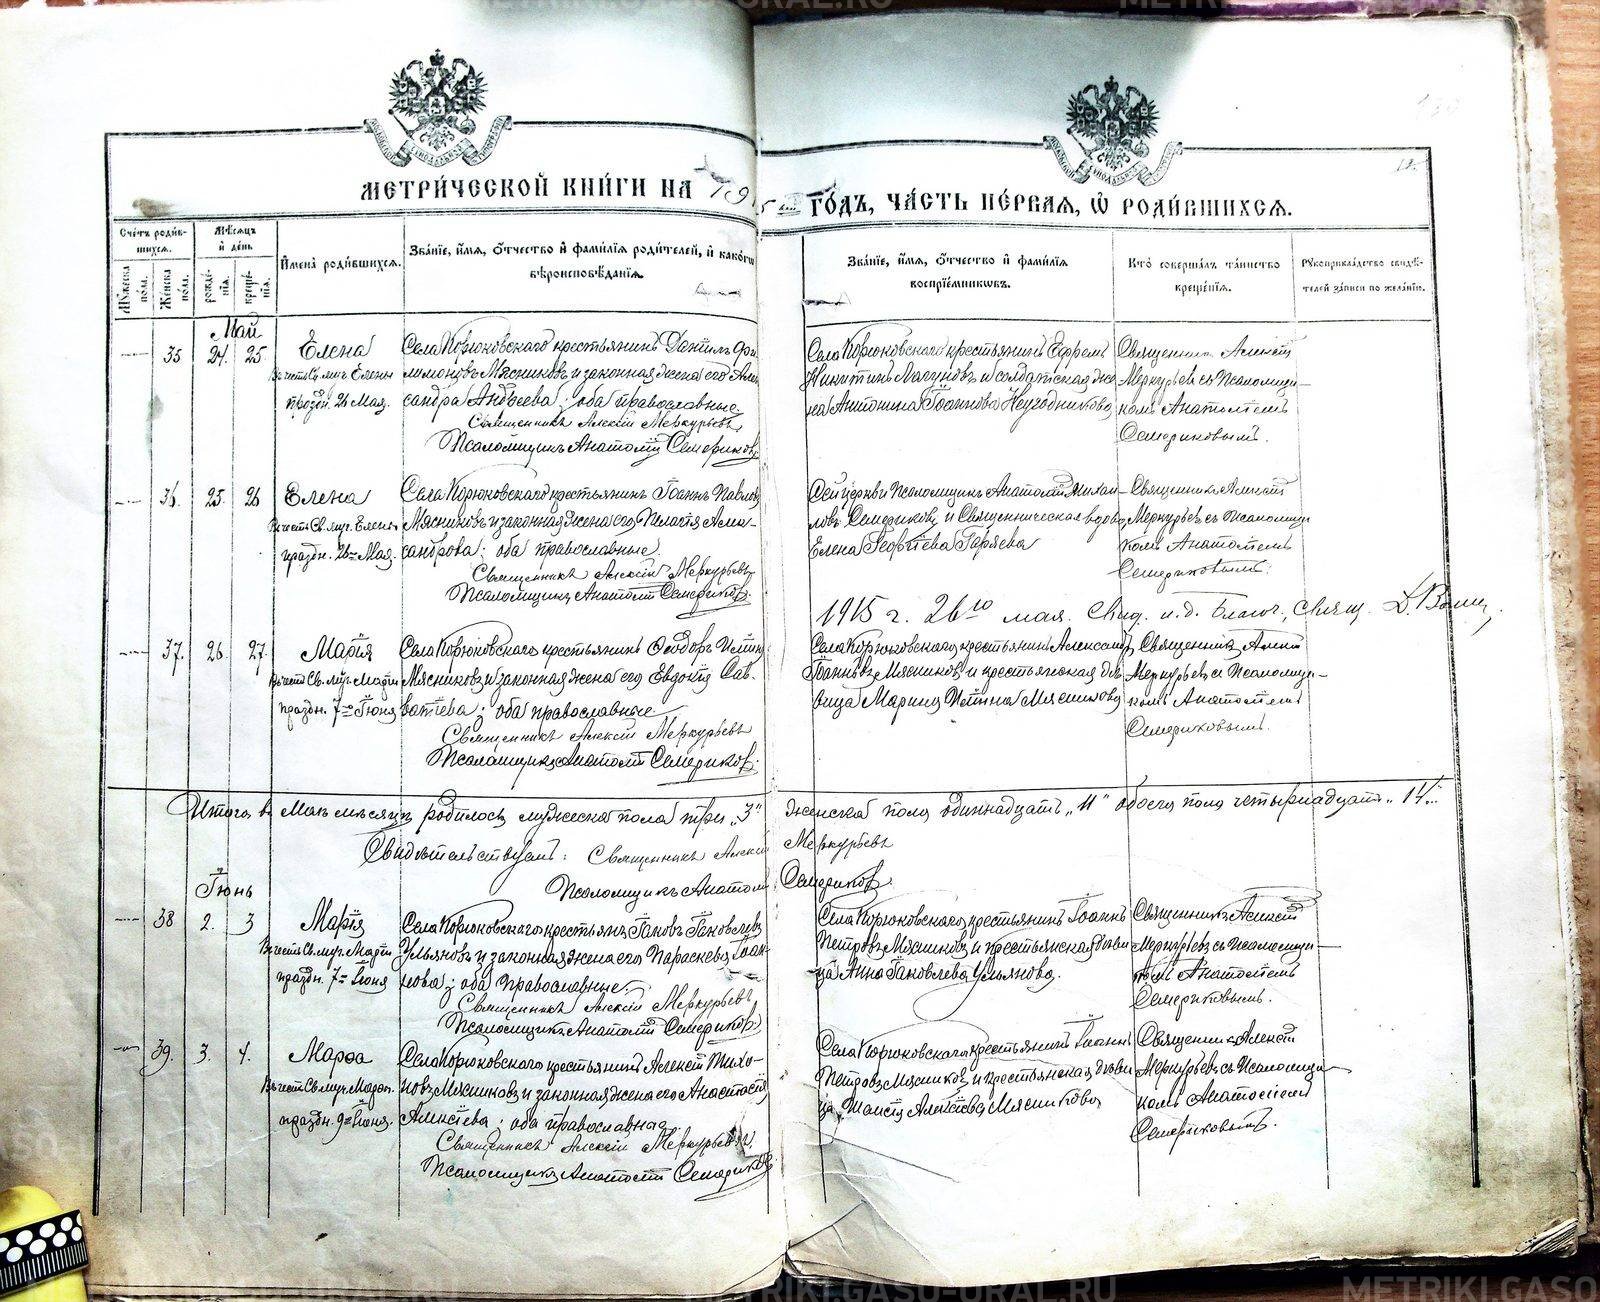 МЕТРИ́ЧЕСКОЙ КНИ́ГИ НА 1915 ГО́ДЪ, ЧА́СТЬ ПЕ́РВАЯ, Ѽ РОДИ́ВШИХСЯ.
12.
Счетъ роди́вшихся.
Мужеска пола.
Женска пола.
Мѣсяцъ и день
рожденія.
крещенія.
Имена роди́вшихся.
Званіе, имя, отчество и фамилія родителей, и какого вѣроисповѣданія.
Званіе, имя, отчество и фамилія воспріемниковъ.
Кто совершалъ таинство крещенія.
Рукоприкладство свидѣтелей записи по желанію.
Май
35 24. 25. Елена
Въ честь Св. муч. Елены
праздн. 26 Мая.
Села Корюковскаго крестьянинъ Даніилъ Фи-
лимоновъ Мясниковъ и законная жена его Алек-
сандра Андреева; оба православные.
Священникъ Алексій Меркурьевъ
Псаломщикъ Анатолій Семериковъ
Села Корюковскаго крестьянинъ Ефремъ
Никитинъ Лагуновъ и солдатская же-
на Антонина Іоаннова
Священникъ Алексій
Меркурьевъ съ Псаломщи-
комъ Анатоліемъ
Семериковымъ.
36. 25. 26 Елена
Въ честь Св. муч. Елены
праздн. 26го Мая.
Села Корюковскаго крестьянинъ Іоаннъ Павловъ
Мясниковъ и законная жена его Пелагія Алек-
сандрова; оба православные.
Священникъ Алексій Меркурьевъ
Псаломщикъ Анатолій Семериковъ.
Сей церкви Псаломщикъ Анатолій Михаи-
ловъ Семериковъ и Священническая вдова
Елена Георгіева Гаряева
Священникъ Алексій
Меркурьевъ съ Псаломщи
комъ Анатоліемъ
Семериковымъ.
1915 г. 26го мая. Свид. и. д. Благоч., Свящ.
37. 26. 27. Марія
Въ честь Св. муч. Маріи
праздн. 7го Іюня
Села Корюковскаго крестьянинъ Ѳеодоръ
Мясниковъ и законная жена его Евдокія Сав-
ватіева; оба православные.
Священникъ Алексій Меркурьевъ
Псаломщикъ Анатолій Семериковъ.
Села Корюковскаго крестьянинъ Александръ
Іоанновъ Мясниковъ и крестьянская дѣ-
вица Марина Мясникова
Священникъ Алексій
Меркурьевъ съ Псаломщи-
комъ Анатоліемъ
Семериковымъ.
Итого въ Маѣ мѣсяцѣ родилось мужеска пола три „3" женска пола одиннадцать „11" обоего пола четырнадцать „14".
Свидѣтельствуемъ: Священникъ Алексій Меркурьевъ
Псаломщикъ Анатолій Семериковъ.
Іюнь
38 2. 3 Марія
Въ честь Св. муч. Маріи
праздн. 7го Іюня
Села Корюковскаго крестьянинъ Іаковъ Іаковлевъ
Ульяновъ и законная жена его Параскева Іоан-
нова; оба православные.
Священникъ Алексій Меркурьевъ
Псаломщикъ Анатолій Семериковъ
Села Корюковскаго крестьянинъ Іоаннъ
Петровъ Мясниковъ и крестьянская дѣви-
ца Анна Іаковлева Ульянова.
Священникъ Алексій
Меркурьевъ съ Псаломщи-
комъ Анатоліемъ
Семериковымъ.
39. 3. 4. Марѳа
Въ честь Св. муч. Марѳы
праздн. 9го Іюня.
Села Корюковскаго крестьянинъ Алексій Тихо-
новъ Мясниковъ и законная жена его Анастасія
Алексіева; оба православные.
Священникъ Алексій Меркурьевъ.
Псаломщикъ Анатолій Семериковъ
Села Корюковскаго крестьянинъ Іоаннъ
Петровъ Мясниковъ и крестьянская дѣви-
ца Таисія Алексіева Мясникова
Священникъ Алексій
Меркурьевъ съ Псаломщи-
комъ Анатоліемъ
Семериковымъ.
METRIKI.GASO-URAL.RU